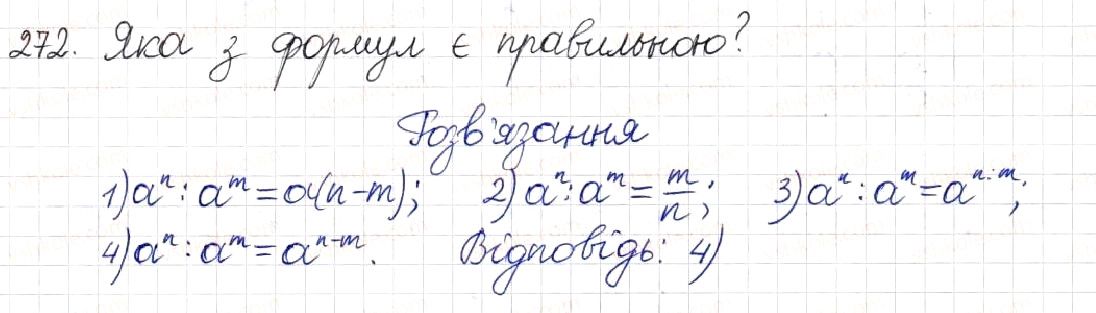 272. Яка з формул є правильною?
Розв'язання
1) aⁿ : aᵐ = a(n-m); 2) aⁿ : aᵐ = m/n; 3) aⁿ : aᵐ = aⁿ:ᵐ;
4) aⁿ : aᵐ = aⁿ⁻ᵐ. Відповідь: 4)